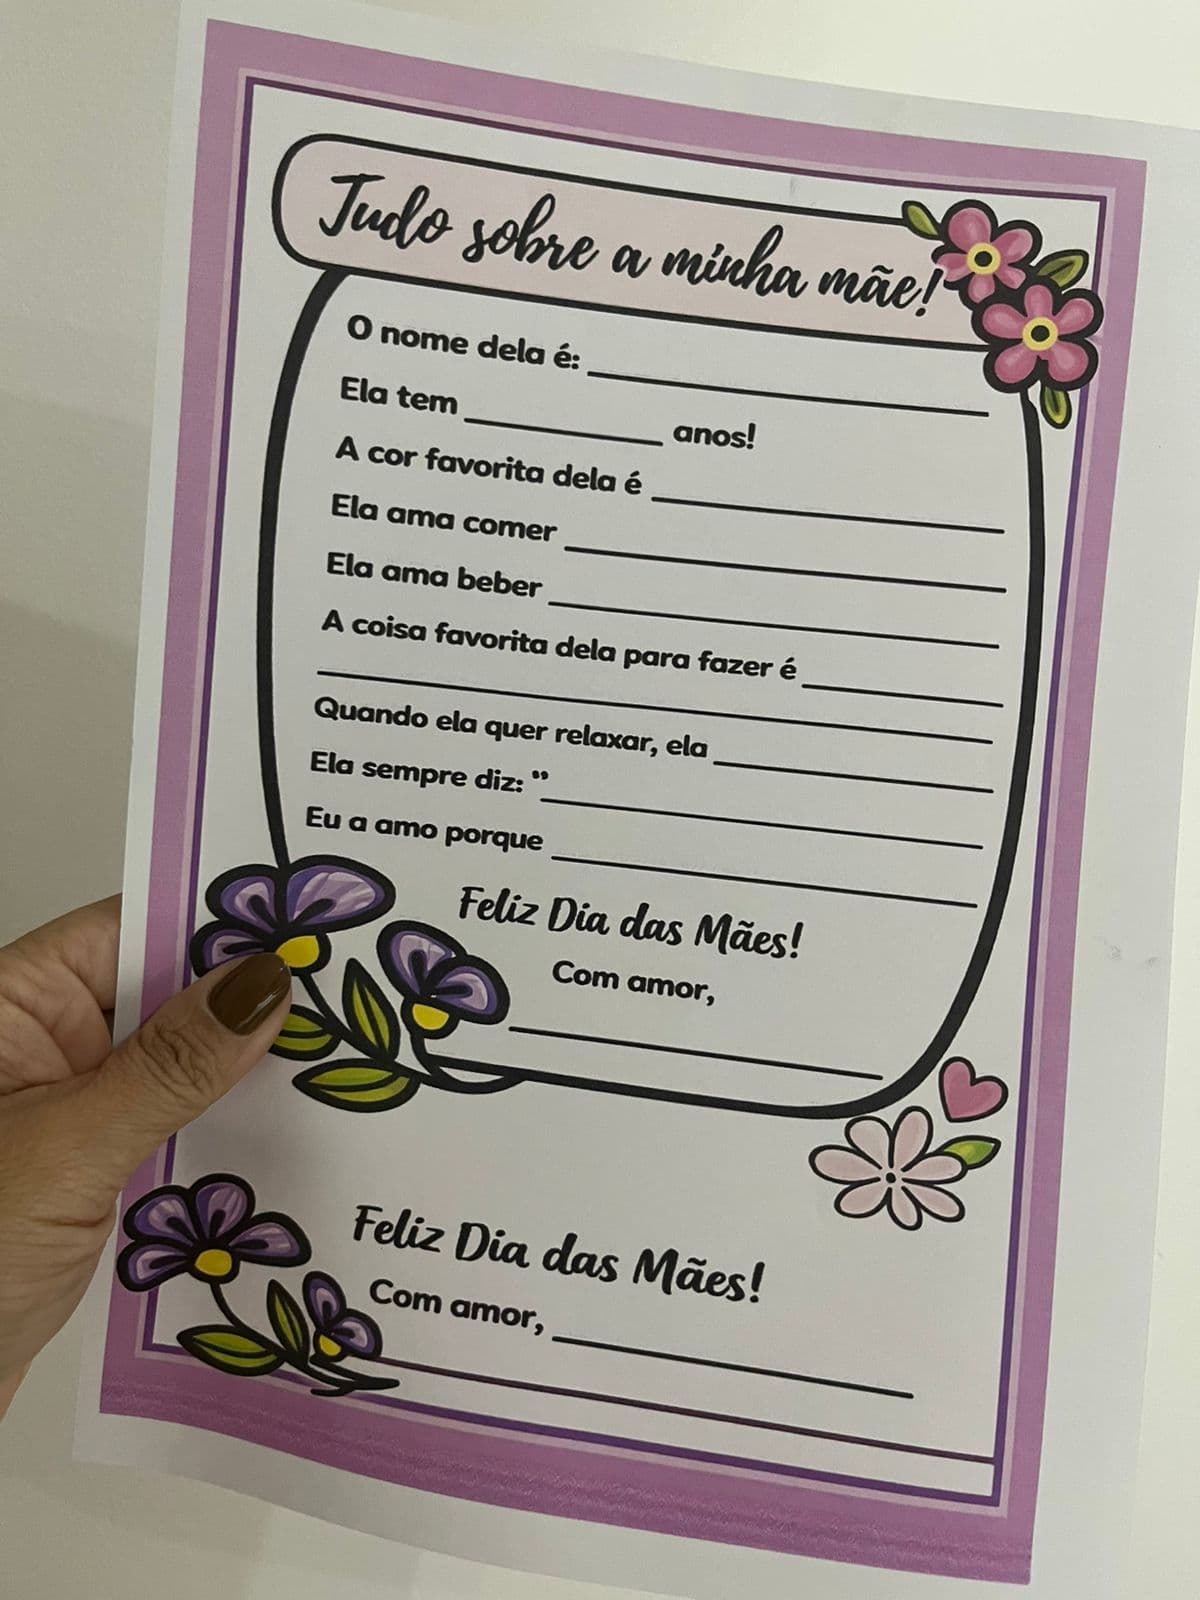 Tudo sobre a minha mãe!
O nome dela é: ____________________
Ela tem __________ anos!
A cor favorita dela é ____________________
Ela ama comer ____________________
Ela ama beber ____________________
A coisa favorita dela para fazer é __________
____________________
Quando ela quer relaxar, ela ____________________
Ela sempre diz: "____________________
Eu a amo porque ____________________
Feliz Dia das Mães!
Com amor,
____________________
Feliz Dia das Mães!
Com amor, ____________________